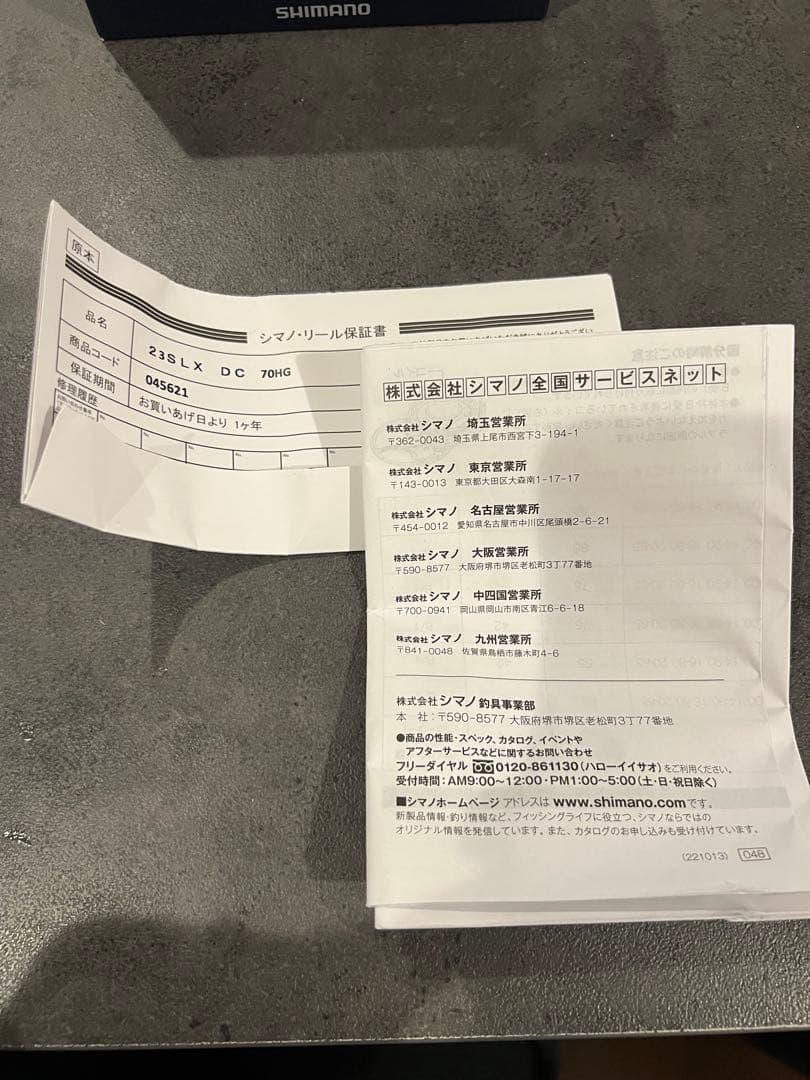 SHIMANO
原本
シマノ・リール保証書
品名 23SLX DC 70HG
商品コード 045621
保証期間 お買いあげ日より 1ヶ年
修理履歴
株式会社シマノ全国サービスネット
株式会社シマノ 埼玉営業所
〒362-0043 埼玉県上尾市西宮下3-194-1
株式会社シマノ 東京営業所
〒143-0013 東京都大田区大森南1-17-17
株式会社シマノ 名古屋営業所
〒454-0012 愛知県名古屋市中川区尾頭橋2-6-21
株式会社シマノ 大阪営業所
〒590-8577 大阪府堺市堺区老松町3丁77番地
株式会社シマノ 中四国営業所
〒700-0941 岡山県岡山市南区青江6-6-18
株式会社シマノ 九州営業所
〒841-0048 佐賀県鳥栖市藤木町4-6
株式会社シマノ釣具事業部
本 社:〒590-8577 大阪府堺市堺区老松町3丁77番地
●商品の性能・スペック、カタログ、イベントや
アフターサービスなどに関するお問い合わせ
フリーダイヤル 0120-861130(ハローイイサオ)をご利用ください。
受付時間:AM9:00〜12:00・PM1:00〜5:00(土・日・祝日除く)
■シマノホームページ アドレスは www.shimano.comです。
新製品情報・釣り情報など、フィッシングライフに役立つ、シマノならではの
オリジナル情報を発信しています。また、カタログのお申し込みも受け付けています。
(221013) 04B